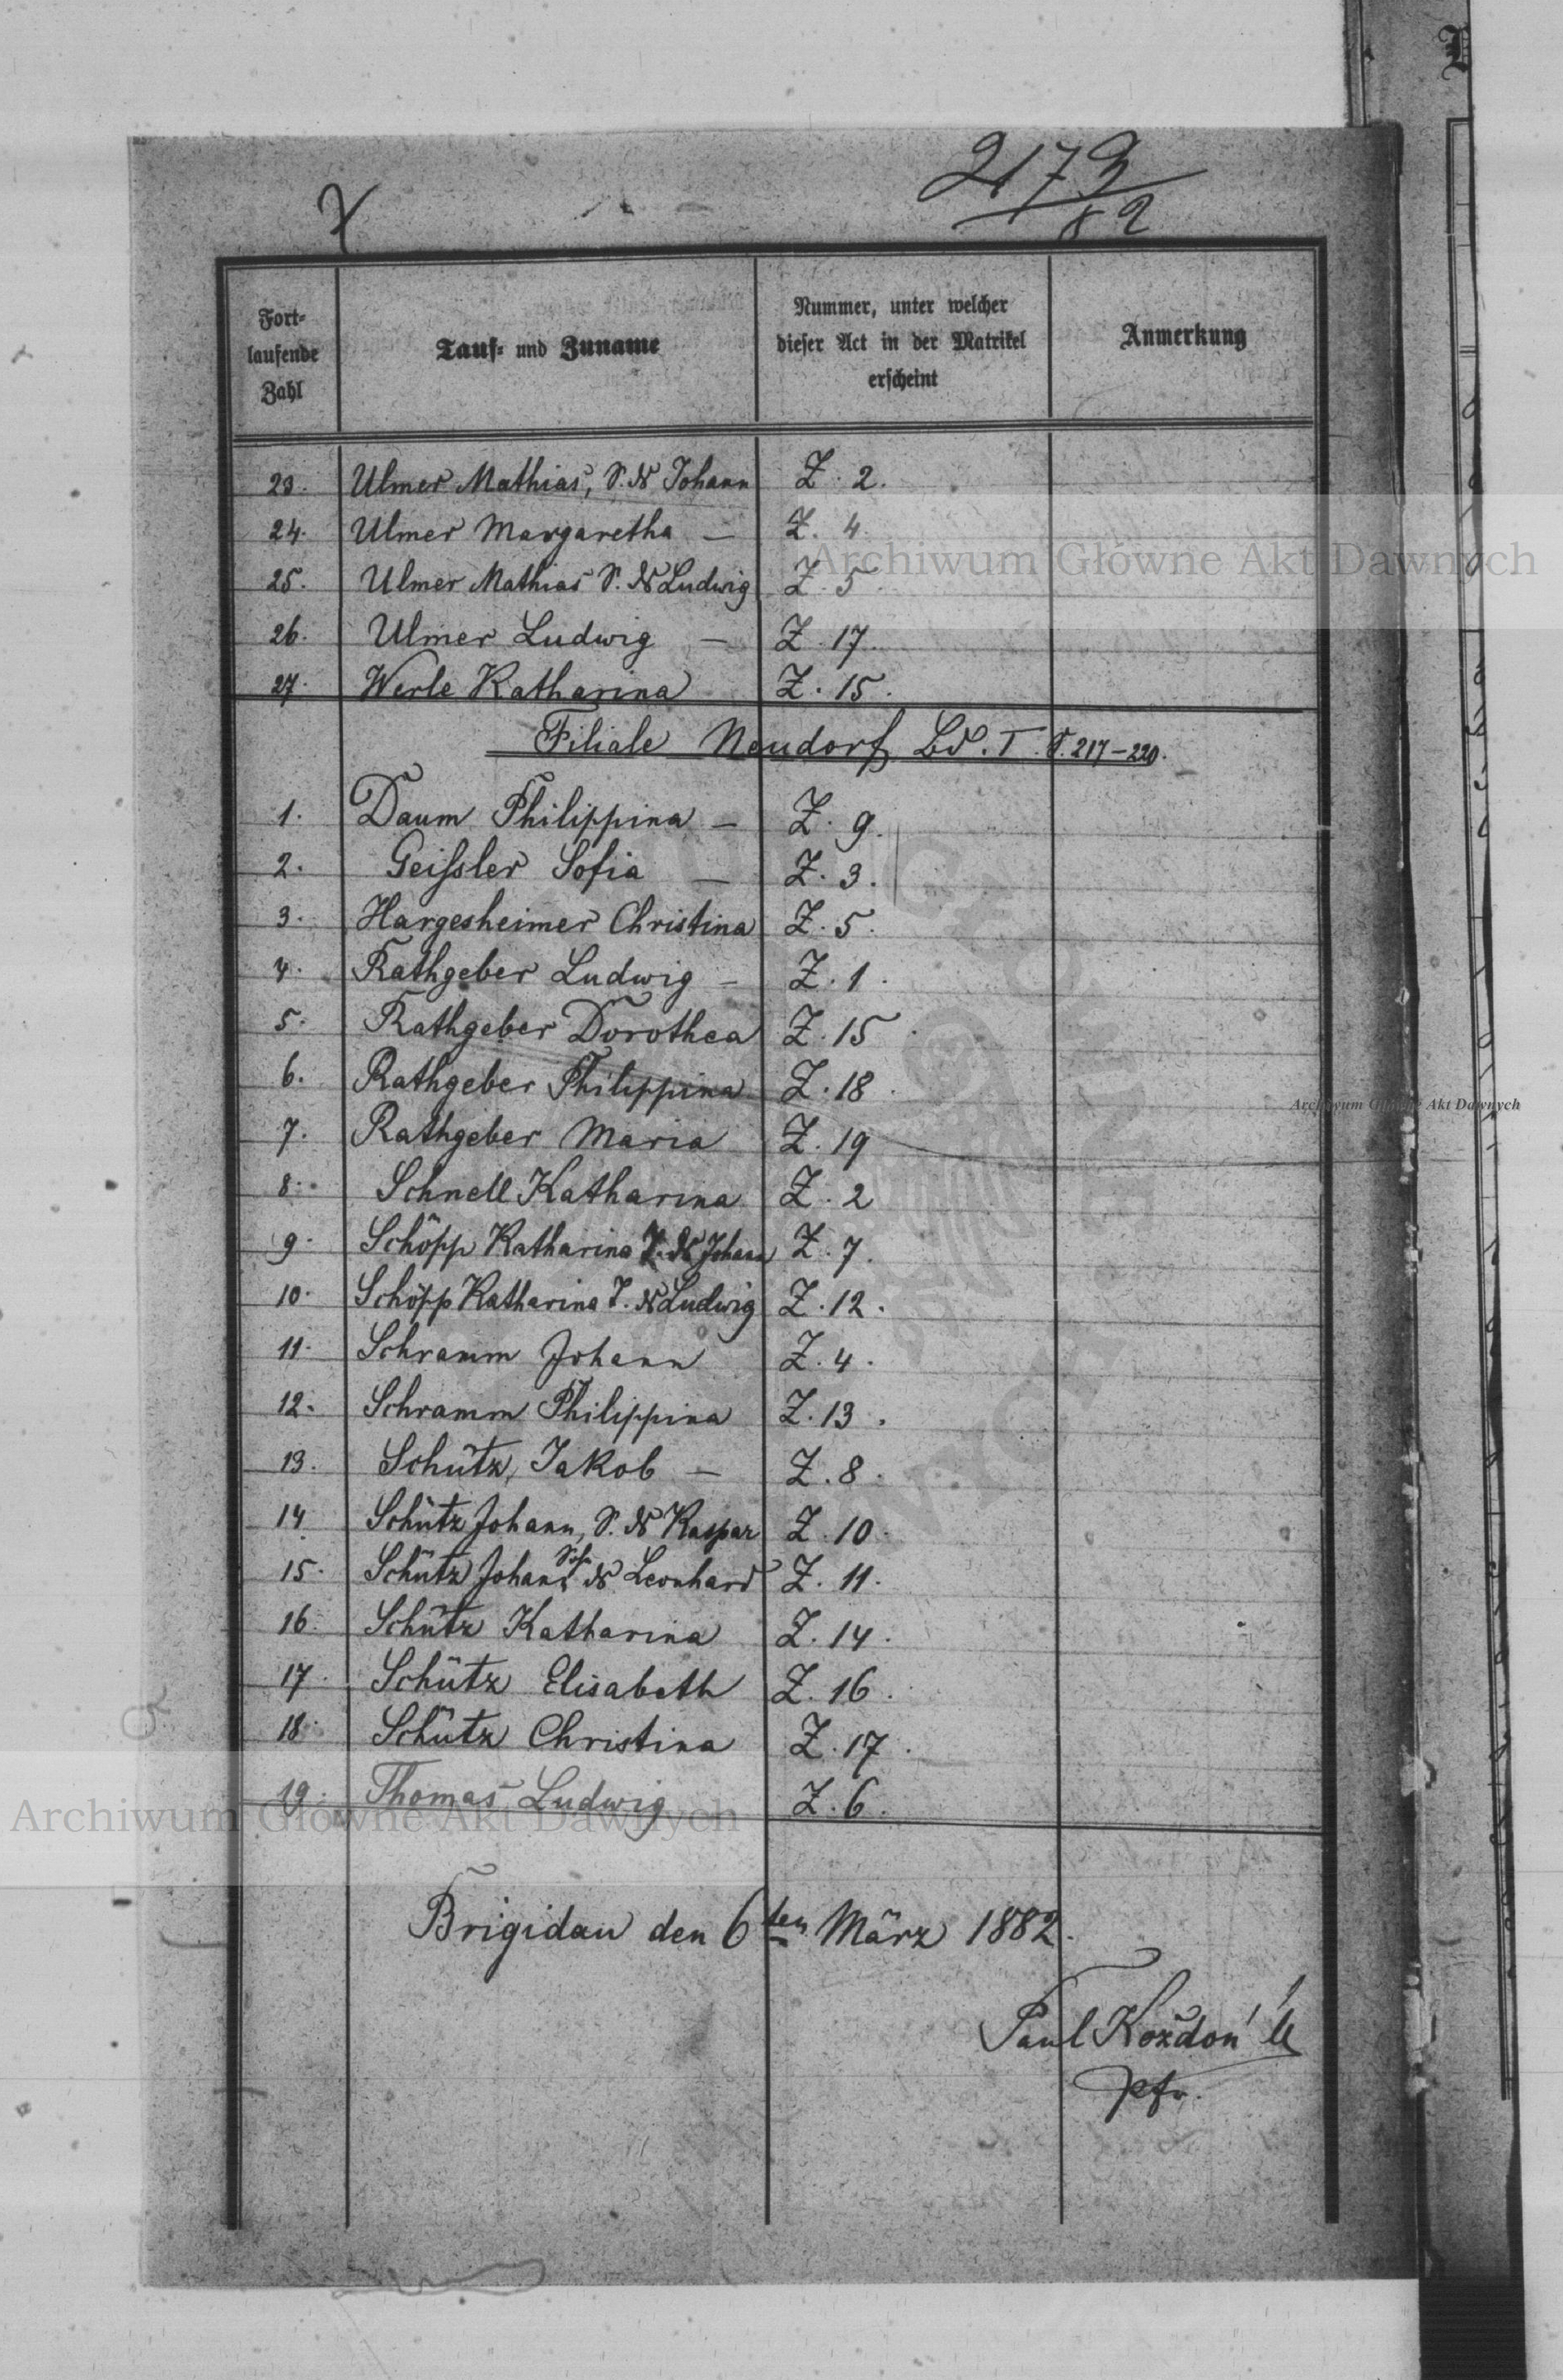 2173
82
Fort-
laufende
Zahl
Tauf- und Zuname
Nummer, unter welcher
dieser Act in der Matrikel
erscheint
Anmerkung
23. Ulmer Mathias, S. d. Johann Z. 2.
24. Ulmer Margaretha — Z. 4.
25. Ulmer Mathias S. d. Ludwig Z. 5.
26. Ulmer Ludwig — Z. 17.
27. Werle Katharina Z. 15.
Filiale Neudorf Bd. I. S. 217-220.
1. Daum Philippina — Z. 9.
2. Geißler Sofia — Z. 3.
3. Hargesheimer Christina Z. 5.
4. Rathgeber Ludwig — Z. 1.
5. Rathgeber Dorothea Z. 15.
6. Rathgeber Philippina Z. 18.
7. Rathgeber Maria Z. 19
8. Schnell Katharina Z. 2
9. Schöpp Katharina T. d. Johann Z. 7.
10. Schöpp Katharina T. d. Ludwig Z. 12.
11. Schramm Johann Z. 4.
12. Schramm Philippina Z. 13.
13. Schütz, Jakob — Z. 8.
14 Schütz Johann, S. d. Kaspar Z. 10.
15. Schütz Johann d. Leonhard Z. 11.
16. Schütz Katharina Z. 14.
17. Schütz Elisabeth Z. 16.
18. Schütz Christina Z. 17.
19. Thomas Ludwig Z. 6.
Brigidau den 6ten März 1882.
Paul Kozdoń
Pfr.
Archiwum Główne Akt Dawnych
Archiwum Główne Akt Dawnych
Archiwum Główne Akt Dawnych